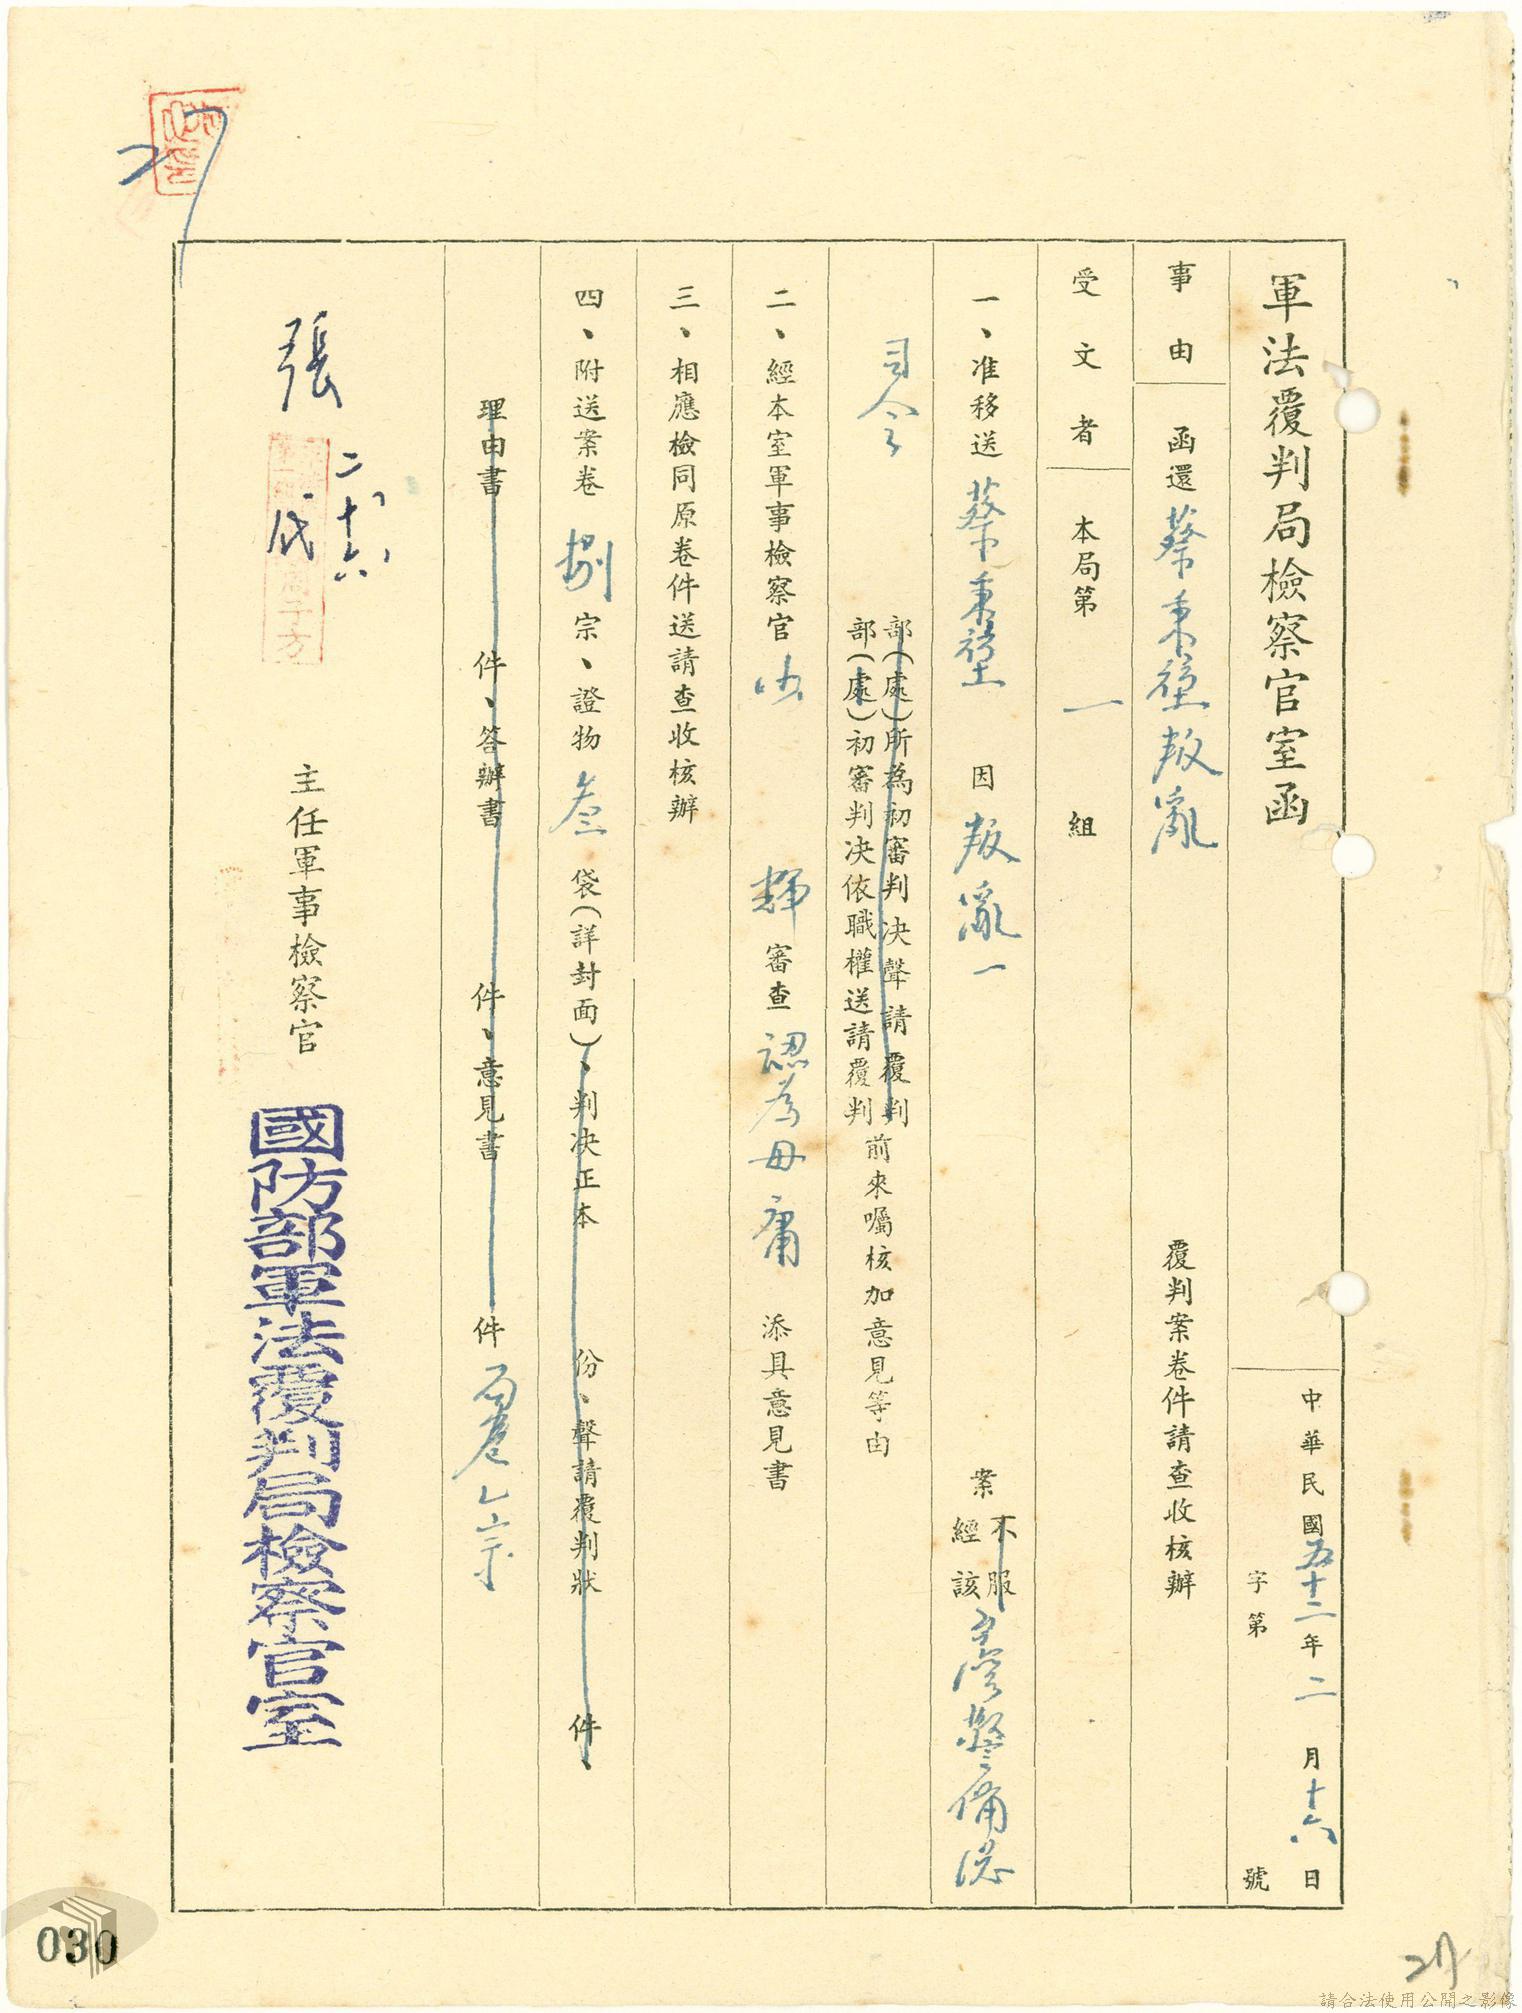 軍法覆判局檢察官室函
中華民國五十二年二月十六日
字第 號
事由 函還蔡秉堃叛亂 覆判案卷件請查收核辦
受文者 本局第一組
一、准移送蔡秉堃因叛亂一案不服經該臺灣警備總
司令部(處)所為初審判決聲請覆判
部(處)初審判決依職權送請覆判前來囑核加意見等由
二、經本室軍事檢察官 輝審查認為毋庸添具意見書
三、相應檢同原卷件送請查收核辦
四、附送案卷捌宗、證物叁袋(詳封面)、判決正本 份、聲請覆判狀 件、
理由書 件、答辯書 件、意見書 件 乙宗
主任軍事檢察官
張
代
二、十六、
國防部軍法覆判局檢察官室
030
27
請合法使用公開之影像